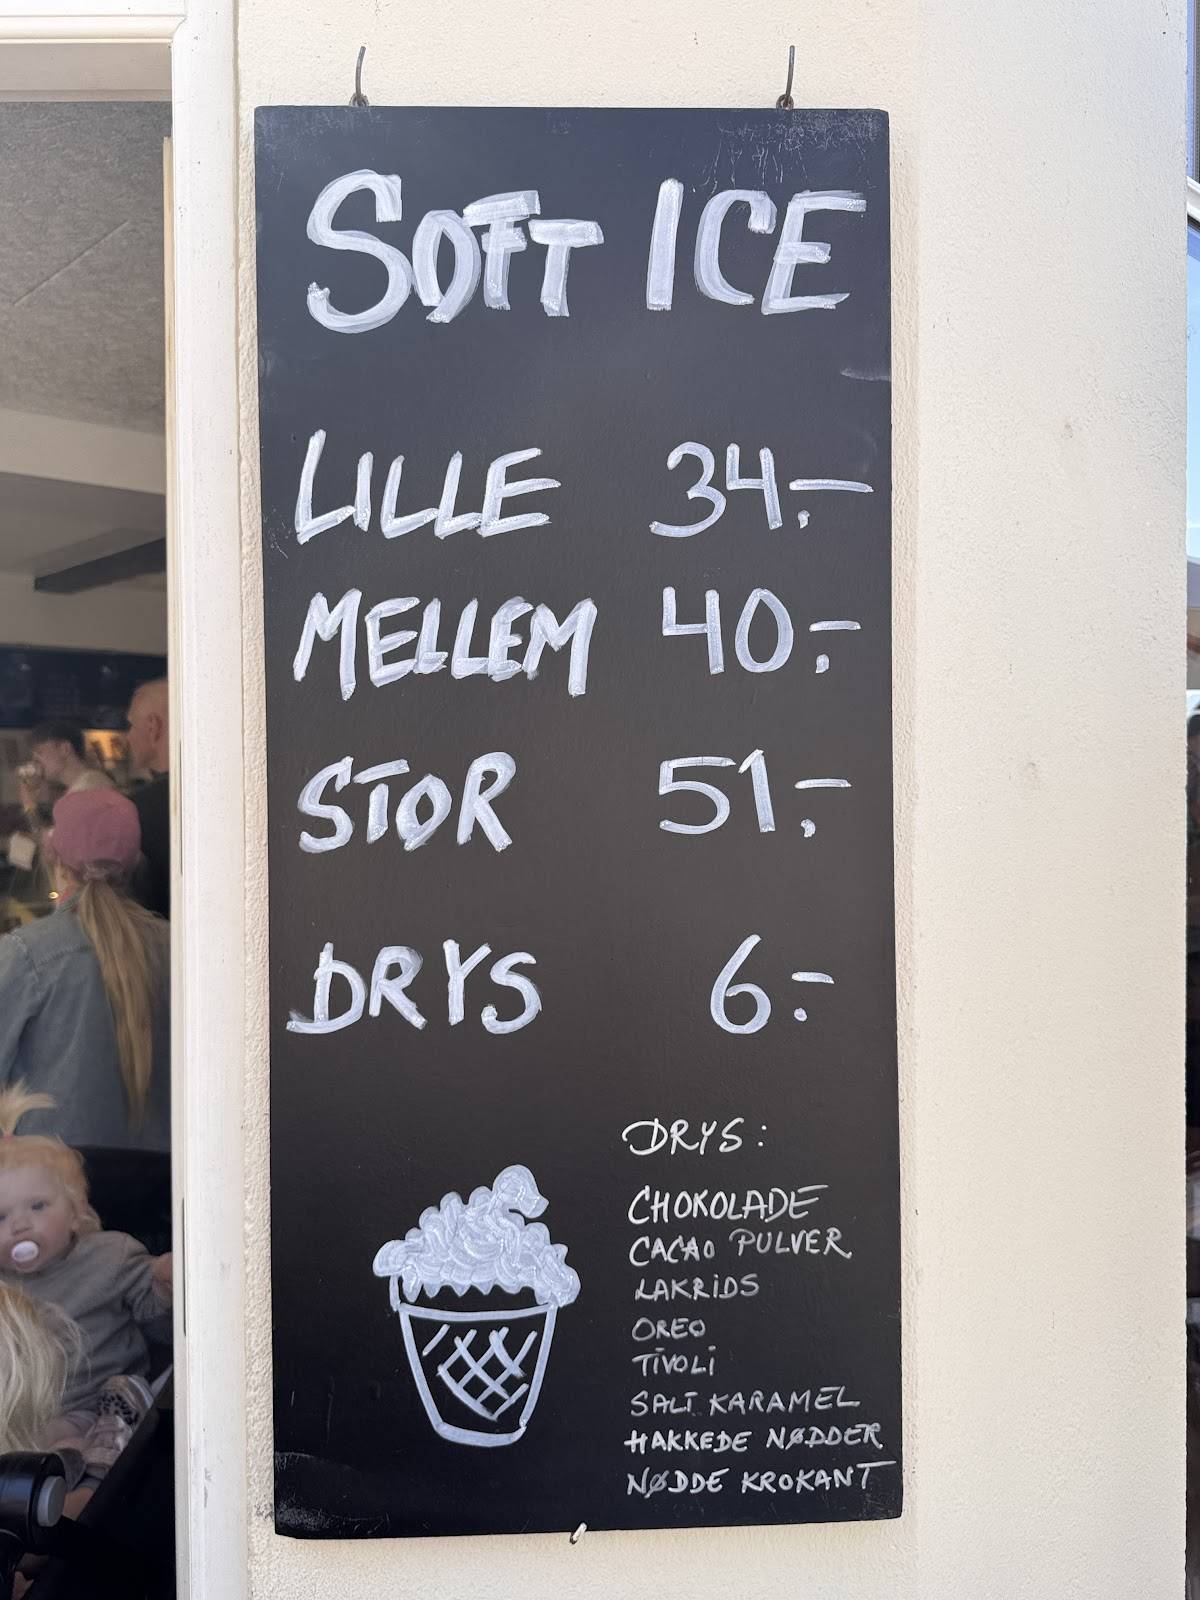 SOFT ICE
LILLE 34.-
MELLEM 40.-
STOR 51.-
DRYS 6.-
DRYS:
CHOKOLADE
CACAO PULVER
LAKRIDS
OREO
TIVOLI
SALT KARAMEL
HAKKEDE NØDDER
NØDDE KROKANT